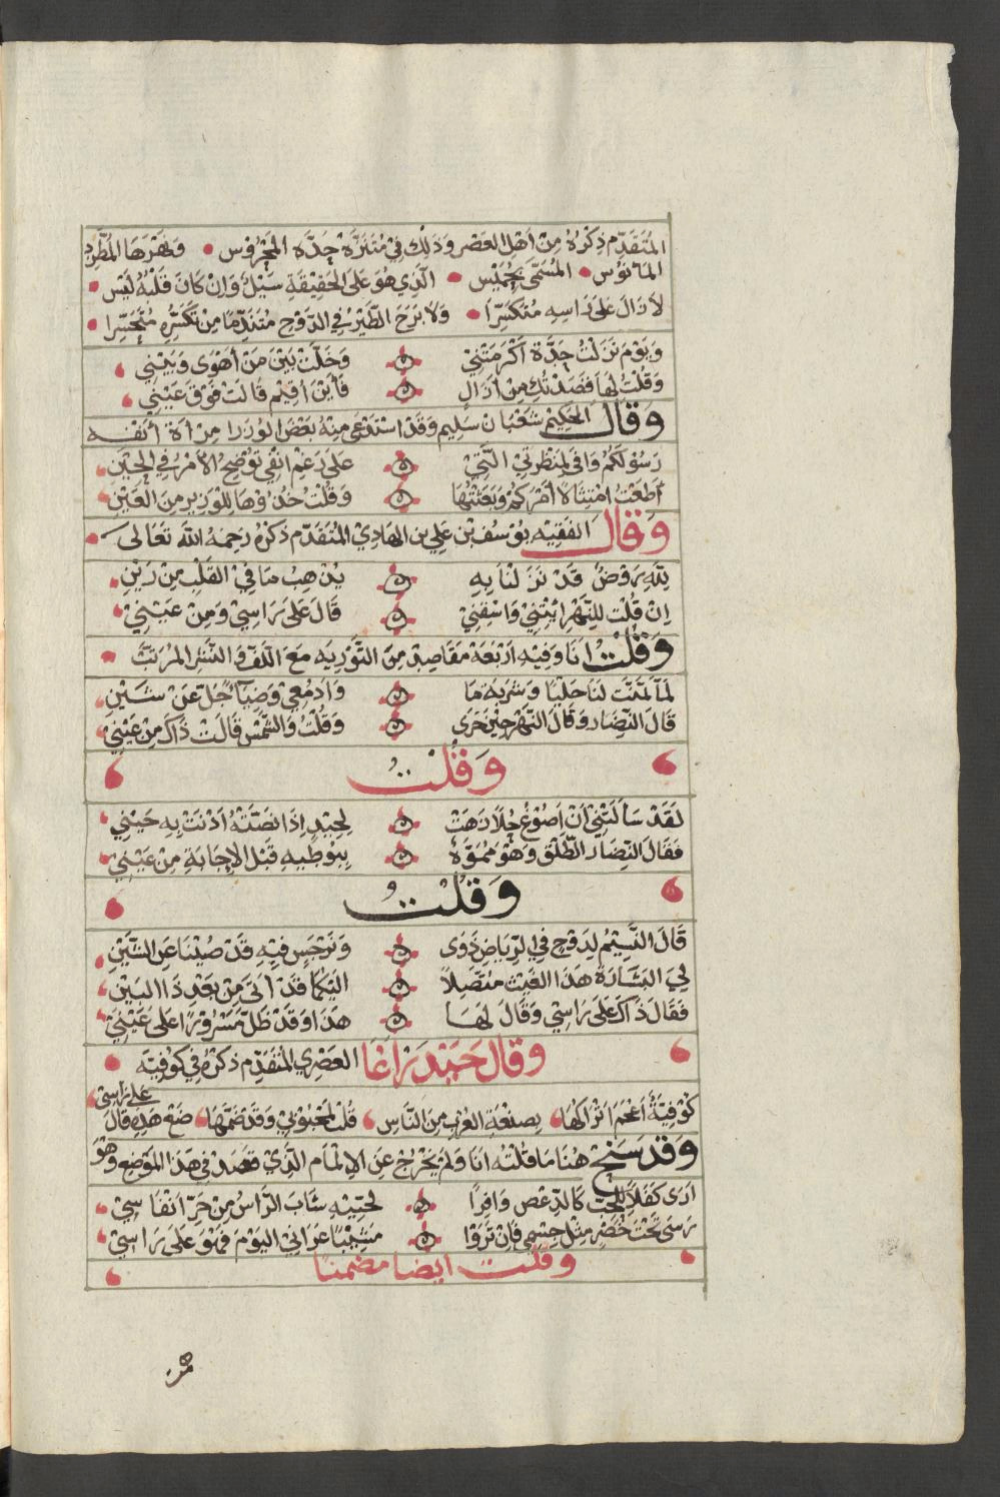 المُتَقَدِّم ذِكْرُهُ مِنْ اَهْلِ العَصْرِ وَذٰلِكَ فِيْ مُتَنَزَّهْ جِدَّه المَحْرُوْسِ • وَنَهْرِهَا المُطَّرِدِ
المَانوْسِ • المُسَمَّى بِخُمَيْس • الَّذِيْ هُوَ عَلَى الحَقِيْقَةِ سَيْلٌ وَاِنْ كَانَ قَلْبُهُ لَيْسَ •
لَا زَالَ عَلَى رَاسِهِ مُتَكَسِّرًا • وَلَا بَرِحَ الطَّيْرُ فِي الدَّوْحِ مُتَنَدِّمًا مِنْ تَكَسُّرِهِ مُتَحَسِّرا •
وَيَوْمَ نَزَلْتُ جِدَّة اَكْرَمَتْنِيْ وَخَلَّتْ بَيْنَ مَنْ أَهْوَى وَبَيْنِي
وَقُلْتُ لَهَا قَصَدْتُكِ مِنْ أَزَالٍ فَأَيْنَ اُقِيْمُ قَالَتْ فَوْقَ عَيْنِي
وَقَالَ الحَكِيْمُ شَعْبَان سَلِيم وَقَدْ اسْتَدْعَى مِنْهُ بَعْضُ الوُزَرَا مِرْاَة اَنْفَه
رَسُوْلُكُمْ وَافَى لِمَنْظَرَتِي الَّتِيْ عَلَى رَغْمِ اَنْفِي تُوْضِحُ الأَمْرَ فِي الحِيْنِ
اَطَعْتُ امْتِثَالًا اَمْرَكُمْ وَبَعَثْتُهَا وَقُلْتُ خُذُوْهَا لِلْوَزِيْرِ مِنَ العَيْنِ
وَقَالَ الفَقِيْه يُوْسُفْ بْن عَلِي بن الهَادِيْ المُتَقَدِّم ذِكْرُهُ رَحِمَهُ الله تَعَالى
لِلّٰهِ رَوْضٌ قَدْ نَزَلْنَا بِهِ يُذْهِبُ مَا فِيْ القَلْبِ مِنْ رَيْنِ
اِنْ قُلْتَ لِلنَّهْرِ ائْتِنِيْ وَاسْقِنِيْ قَالَ عَلَى رَاسِيْ وَمِنْ عَيْنِيْ
وَقُلْتُ اَنَا وَفِيْهِ اَرْبَعَةْ مَقَاصِدْ مِنَ التَّوْرِيَه مَعَ اللَّفِّ وَ النَّشْرِ المُرَتَّبْ
لَمَّا تَمَنَّتْ لَنَا حَلْيًا وَشَرْبَةَ مَا وَاَدْمُعِيْ وَضِيَاً جَلَّ عَنْ شَيْنِ
قَالَ النُّضَار وَقَالَ النَّهْر حِيْنَ جَرَى وَقُلْتُ وَالشَّمْسُ قَالَتْ ذَاكَ مِنْ عَيْنِيْ
وَقُلْتُ
لَقَدْ سَاَلَتْنِيْ اَنْ اَصُوْغَ حُلًا زَهَتْ لِجِيْدٍ اِذَا نَصَّتْهُ اَدْنَتْ بِهِ حَيْنِي
فَقَالَ النُّضَار الطَّلْق وَهْوَ مُمَوَّهٌ بِتَوْطِيَهِ قَبْلَ الإِجَابَةِ مِنْ عَيْنِيْ
وَقُلْتُ
قَالَ النَّسِيْمُ لِدَوْحٍ فِي الرِّيَاضِ ذَوَى وَنَرْجِسٍ فِيْهِ قَدْ صُيِّنَا عَنِ الشَّيْنِ
لِيَ البَشَارَةُ هَذَا الغَيْثُ مُتَّصِلًا اَلَيْكُمَا قَدْ اَتَى مِنْ بَعْدِ ذَا البَيْنِ
فَقَالَ ذَاكَ عَلَى رَاسِيْ وَقَالَ لَهَا هَذَا وَقَدْ ظَلَّ مَسْرُوْرًا عَلَى عَيْنِيْ
وقال حَيْدَرْ اَغَا العَصْرِي المُتَقَدِّم ذِكْرُهُ فِيْ كُوْفِيَّه
كُوْفِيَّةٌ اَعْجَمَ اَتْرَاكُهَا بِصَنْعَةِ العُرْبِ مِنَ النَّاسِ قُلْتُ لِمَحْبُوْبِيْ وَقَدْ ضَمَّهَا ضَعْ هَذِهِ قَالَ
عَلَى رَاسِيْ
وَقَد سَنَحَ هُنَا مَا قُلْتُه اَنَا وَلَمْ يَخْرُجْ عَنِ الاِلْمَام الَّذِيْ قُصِدَ فِيْ هَذَا المَوْضِع وَهْوَ
اَرَى كَفَلًا تَحْتَ كَالدِّعْصِ وَافِرًا لِحَتِيِّهِ شَابَ الرَّاسُ مِنْ حَرِّ اَنْفَاسِي
رَسَى تَحْتَ خَصْرٍ مِثْلِ جِسْمِي فَاِنْ تَرَوْا مَشِيْبًا عَرَانِي اليَوْم فَهْوَ عَلَى رَاسِيْ
وقلت ايضا مضمنا